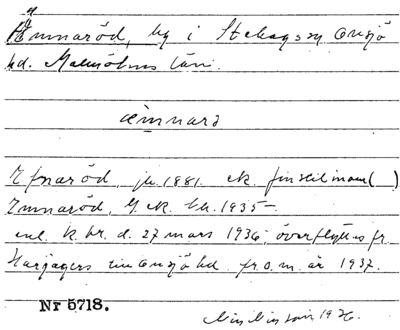 Ämnaröd, by i Stehags sn Onsjö
hd. Malmöhus län.
ämnarö
Efnaröd jb. 1881. ek.
Emnaröd, G.K. bl. 1935 –
enl. k. br. d. 27 mars 1936 överflyttas fr.
Harjagers till Onsjö hd. fr.o.m. år 1937.
Nr 5718.
1936.